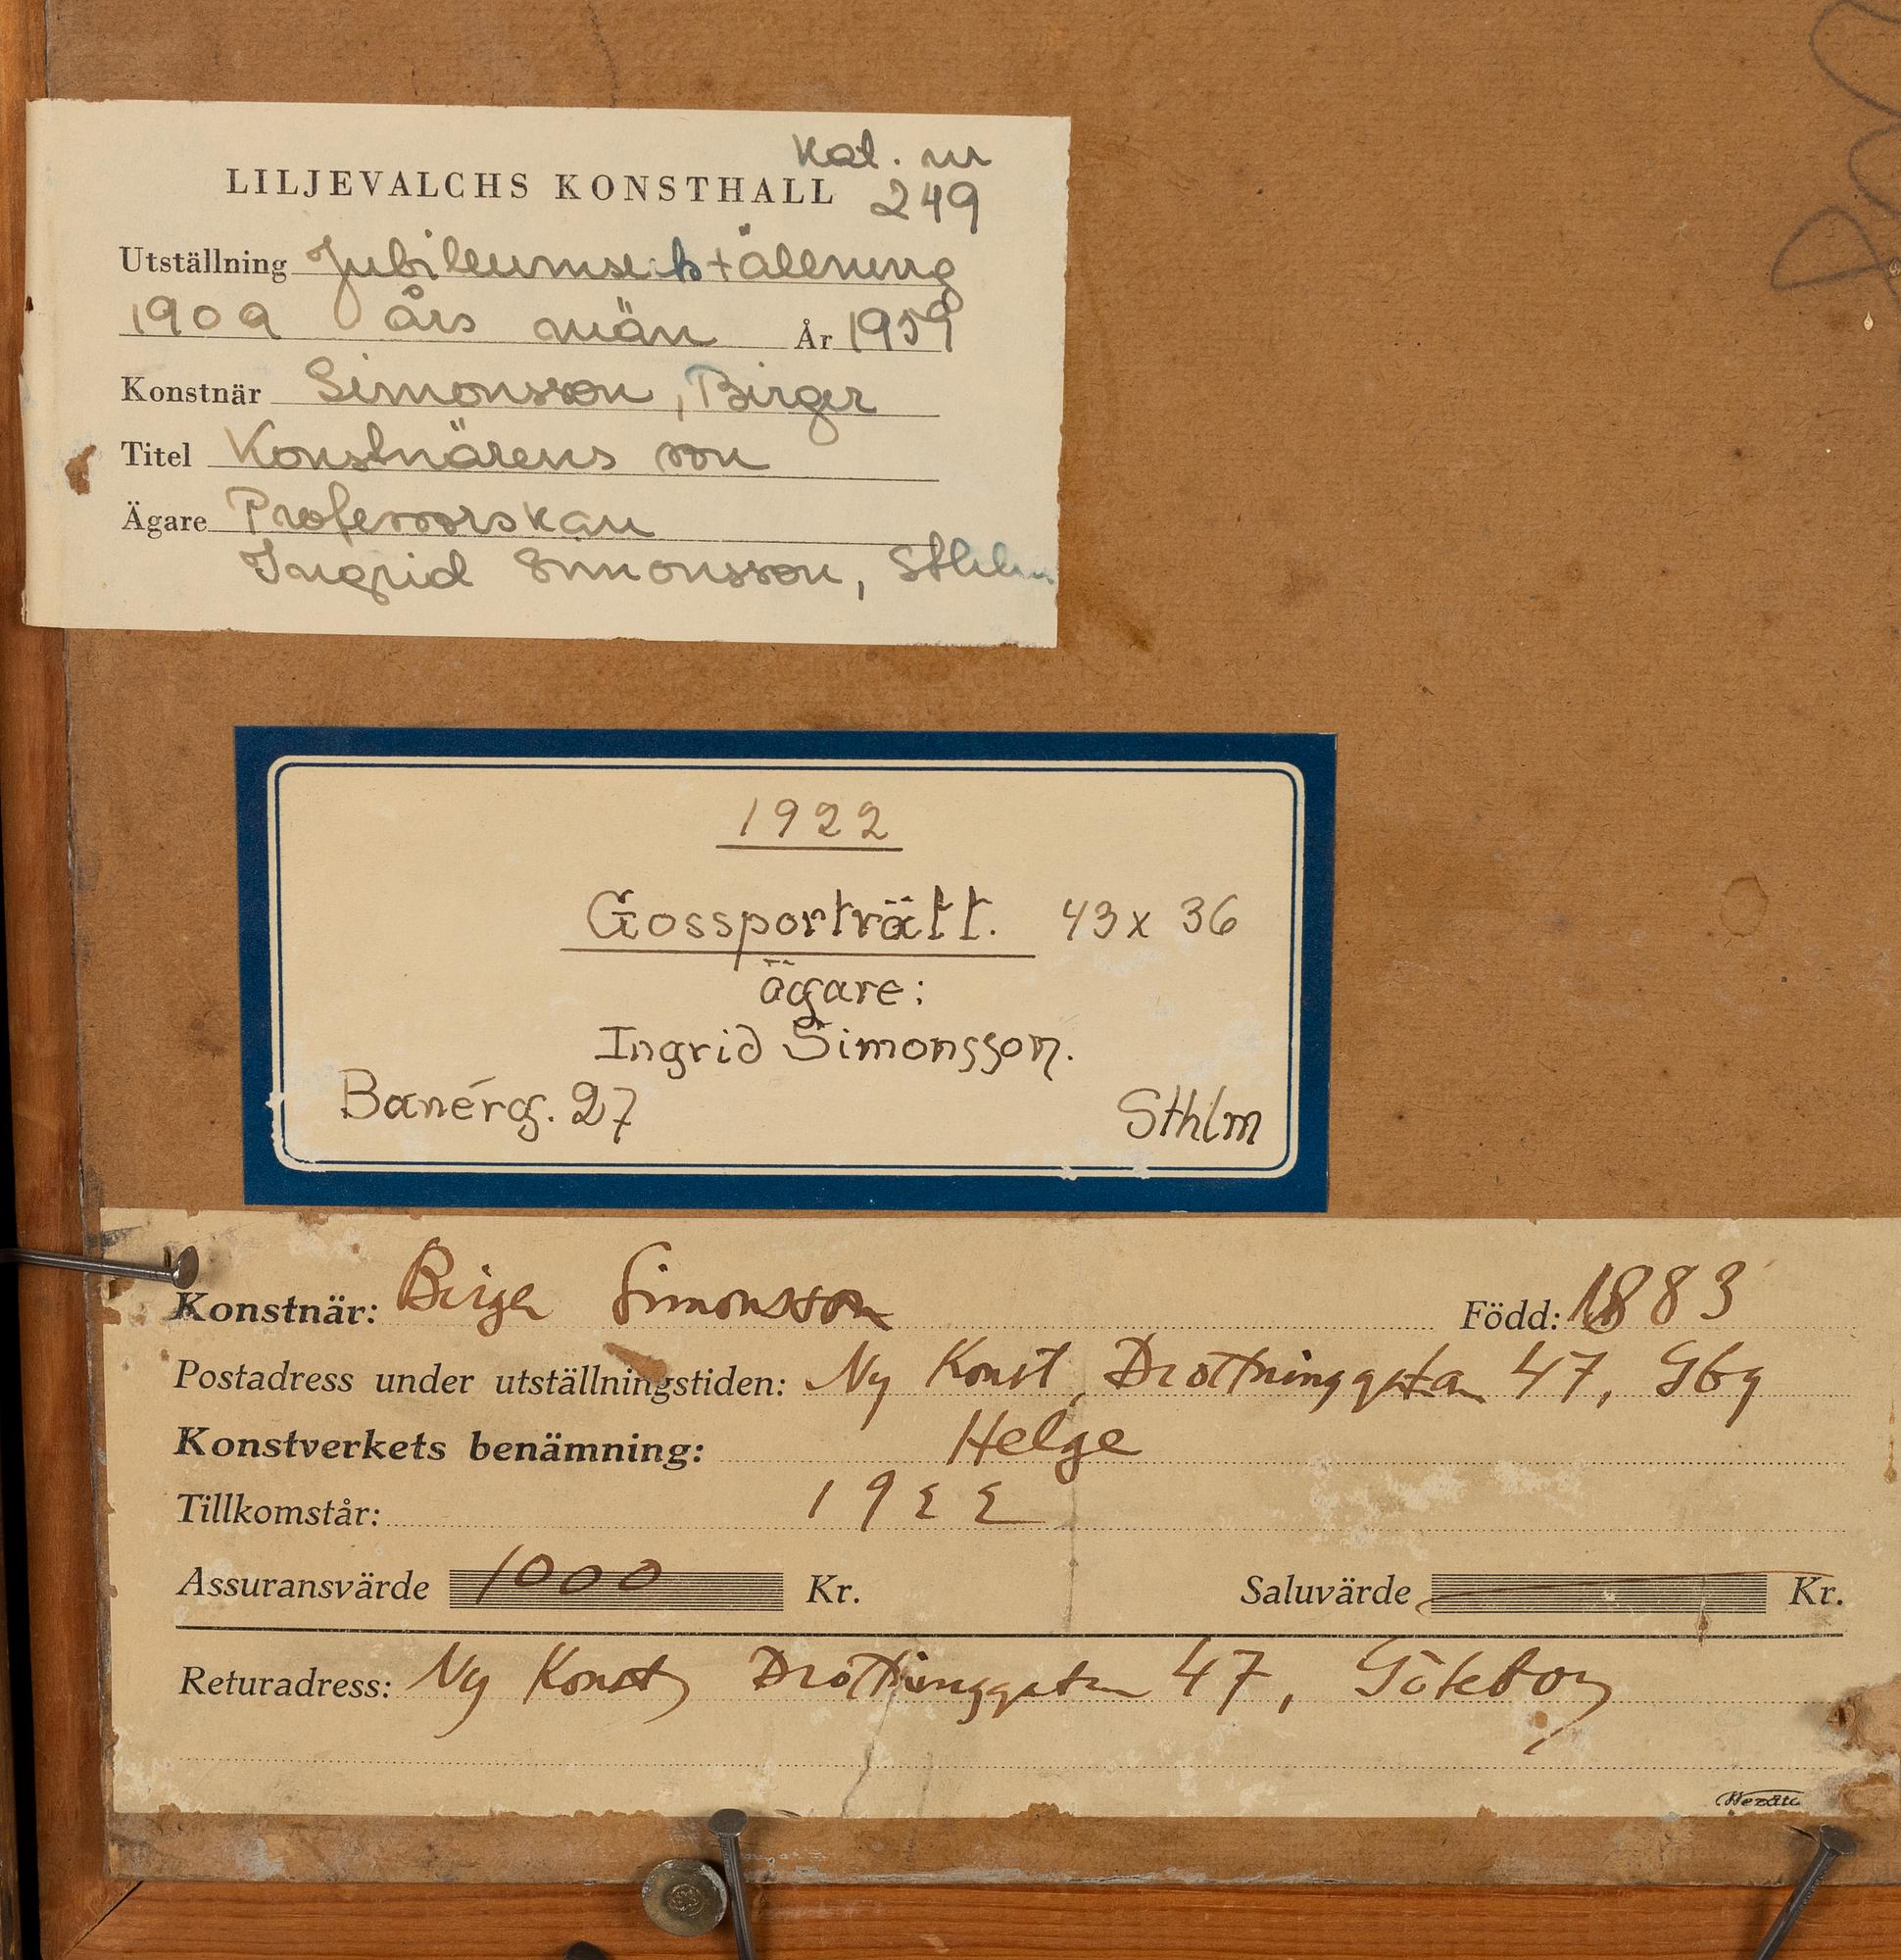 Kat. nr
LILJEVALCHS KONSTHALL 249
Utställning Jubileumsutställning
1909 års män År 1959
Konstnär Simonsson, Birger
Titel Konstnärens son
Ägare Professorskan
Ingrid Simonsson, Sthlm
1922
Gossporträtt. 43 x 36
ägare:
Ingrid Simonsson.
Banérg. 27 Sthlm
Konstnär: Birger Simonsson Född: 1883
Postadress under utställningstiden: Ny Konst, Drottninggatan 47, Gbg
Konstverkets benämning: Helge
Tillkomstår: 1922
Assuransvärde 1000 Kr. Saluvärde Kr.
Returadress: Ny Konst, Drottninggatan 47, Göteborg